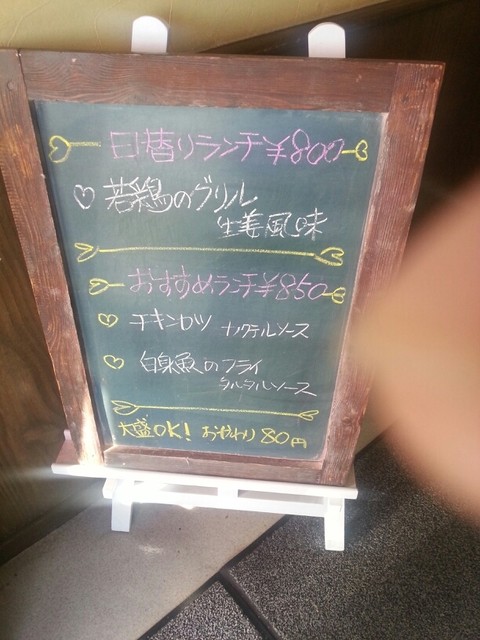 日替りランチ¥800
若鶏のグリル
生姜風味
おすすめランチ¥850
チキンカツ
白身魚のフライ
タルタルソース
大盛OK! おかわり80円